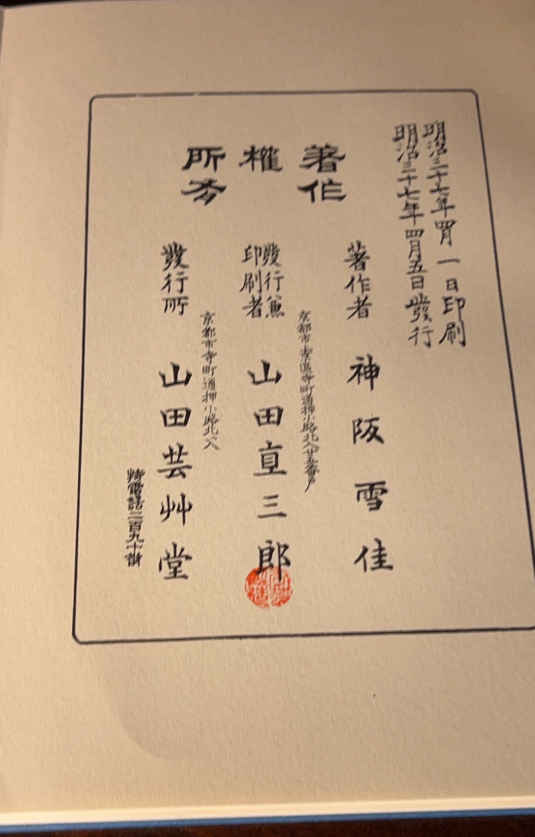 明治三十七年四月一日印刷
明治三十七年四月五日發行
著作
權
所有
著作者 神阪雪佳
京都市上京區寺町通押小路北入廿五番戸
發行兼印刷者 山田直三郎
京都市寺町通押小路北入
發行所 山田芸艸堂
特電話二百九十番